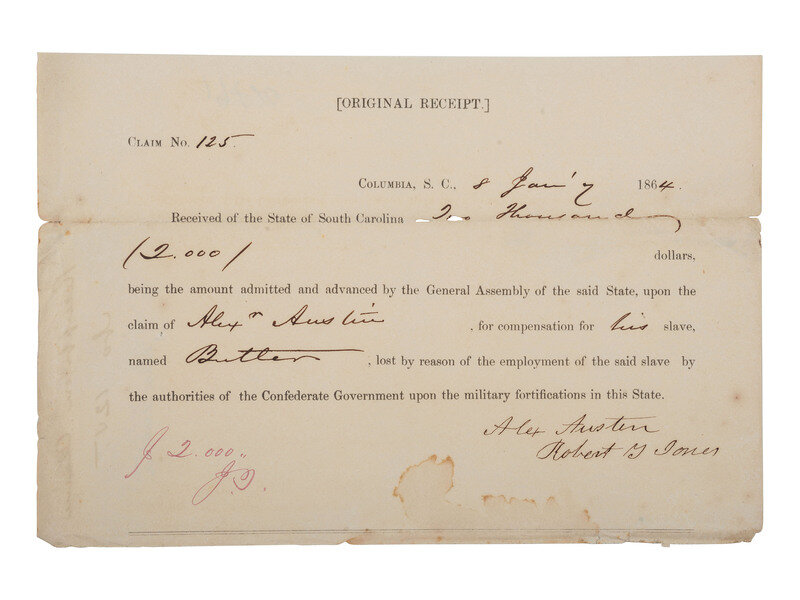 [ORIGINAL RECEIPT.]
CLAIM No. 125.
COLUMBIA, S. C., 8 Jan'y 1864.
Received of the State of South Carolina Two Thousand
(2.000) dollars,
being the amount admitted and advanced by the General Assembly of the said State, upon the
claim of Alexr Austin, for compensation for his slave,
named Butler, lost by reason of the employment of the said slave by
the authorities of the Confederate Government upon the military fortifications in this State.
Alex Austin
Robert Y Jones
$ 2.000..